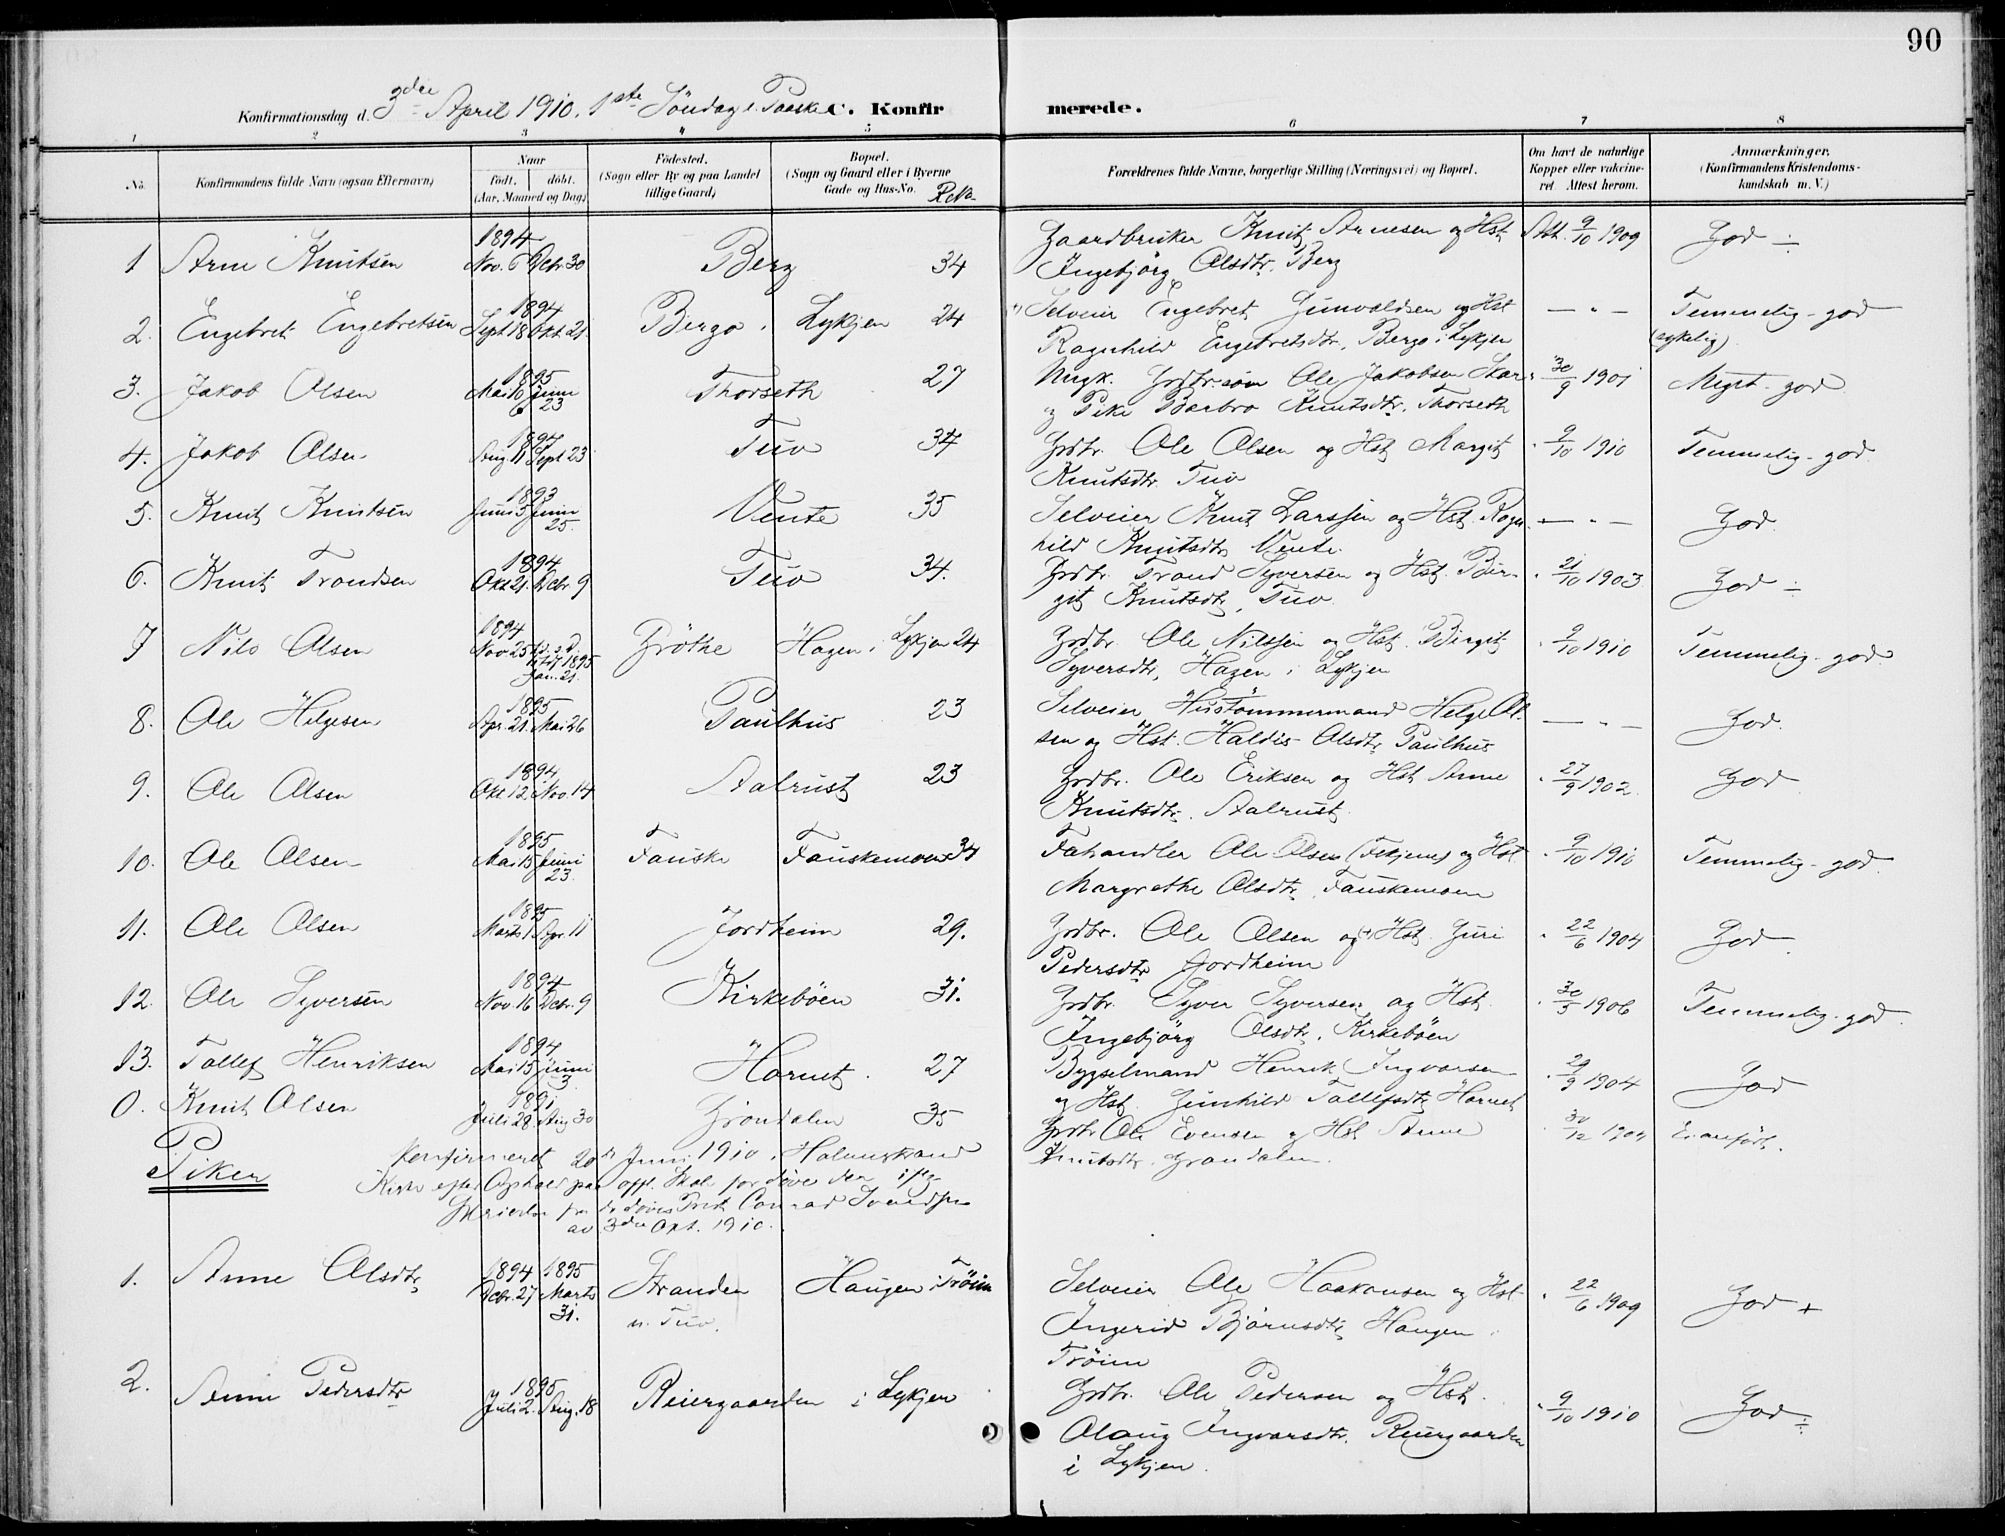 90
Konfirmationsdag d. 3die April 1910. 1ste Søndag e. Paaske C. Konfirmerede.
1 2 3 4 5 6 7 8
No. Konfirmandens fulde Navn (ogsaa Efternavn) Naar født. døbt. (Aar, Maaned og Dag.) Födested. (Sogn eller By og paa Landet tillige Gaard) Bopæl. (Sogn og Gaard eller i Byerne Gade og Hus-No. Forældrenes fulde Navne, borgerlige Stilling (Næringsvei) og Bopæl. Om havt de naturlige Kopper eller vakcineret. Attest herom. Anmærkninger. (Konfirmandens Kristendomskundskab m. V.)
1 Arne Knutsen 1894 Nov. 6 Dcbr. 30 Berg 34 Gaardbruker Knut Arnesen og Hst Att. 9/10 1909 God ÷
Ingebjörg Olsdtr. Berg
2. Engebret Engebretsen 1894 Sept 18 Okt. 21. Bergo i Lykjen 24 Selveier Engebret Gunvaldsen og Hst — " — Temmelig-god
Ragnhild Engebretsdtr, Bergo i Lykjen (sykelig)
3. Jakob Olsen 1895 Mai 16 Juni 23 Thorseth 27 Ungk. Grdbr.søn Ole Jakobsen Skar 30/9 1901 Meget-god
og Pike Barbro Knutsdtr. Thorseth
4. Jakob Olsen 1894 Aug 11 Sept 23 Tuv 34 Grdbr. Ole Olsen og Hst Margit 9/10 1910 Temmelig-god
Knutsdtr. Tuv
5. Knut Knutsen 1893 Juni 5 Juni 25. Vente 35 Selveier Knut Larssen og Hst. Ragn — " — God
hild Knutsdtr. Vente.
6. Knut Trondsen 1894 Okt 21. Dcbr 9 Tuv 34. Grdbr. Trond Syversen og Hst. Bir- 21/10 1903 God ÷
git Knutsdtr, Tuv
7 Nils Olsen 1894 Nov 25 1895 Jan. 21. Gröthe Hagen i Lykjen 24 Grdbr. Ole Nilssen og Hst. Birgit 9/10 1910 Temmelig-god.
Syversdtr, Hagen i Lykjen
8. Ole Helgesen 1895 Apr. 21. Mai 26 Paulhus 23 Selveier Hustömmermand Helge Ol- — " — God.
sen og Hst. Haldis Olsdtr Paulhus
9. Ole Olsen 1894 Okt 12 Nov. 14 Aalrust 23 Grdbr. Ole Eriksen og Hst Anne 27/9 1902 God
Knutsdtr. Aalrust.
10. Ole Olsen 1895 Mai 15 Juni 23 Fauske Fauskemoen 34 Fæhandler Ole Olsen (Fekjene) og Hst. 9/10 1910 Temmelig-god.
Margrethe Olsdtr, Fauskemoen
11. Ole Olsen 1895 Marts 1 Apr. 11 Jordheim 29. Grdbr. Ole Olsen og Hst. Guri 22/6 1904 God
Pedersdtr Jordheim
12. Ole Syversen 1894 Nov. 16 Dcbr. 9 Kirkeböen 31. Grdbr. Syver Syversen og Hst. 30/5 1906 Temmelig-god.
Ingebjörg Olsdtr, Kirkeböen
13. Tollef Henriksen 1894 Mai 15 Juni 3. Harnet. 27 Bygselmand Henrik Ingvarsen 29/9 1904 God
og Hst. Gunhild Tollefsdtr Harnet
0. Knut Olsen 1891 Juli 28. Aug 30 Gröndalen 35 Grdbr Ole Evensen og Hst Anne 30/12 1904 Er anført.
Knutsdtr. Grøndalen.
Konfirmeret 20de Juni 1910 i Holmestrand
Piker
Kirke efter Ophold paa off. Skole for Døve der iflg
Skrivelse fra Døves Prest Conrad Svendsen
av 3die Okt. 1910.
1. Anne Olsdtr 1894 Dcbr. 27 1895 Marts 31. Stranden u. Tuv. Haugen i Tröim Selveier Ole Haakonsen og Hst. 22/6 1909 God +
Ingerid Björnsdtr Haugen i
Tröim
2. Anne Pedersdtr 1895 Juli 2. Aug. 18 Reiergaarden i Lykjen Grdbr. Ole Pedersen og Hst. 9/10 1910 God ÷
Olaug Ingvarsdtr. Reiergaarden
i Lykjen.